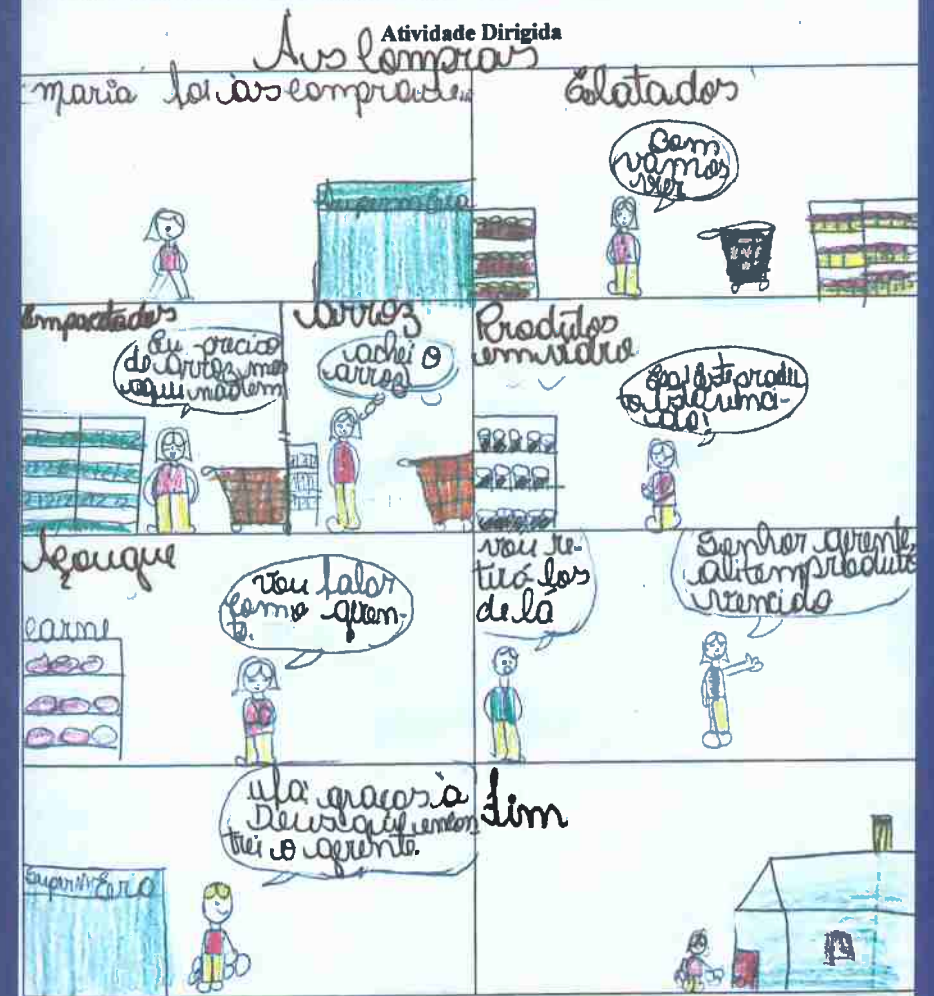 Atividade Dirigida
Aus Compras
maria foi às compras
Enlatados
Bom
vamos
ver
Supermercado
Empacotados
Eu preciso
de arroz mas
aqui não tem
Arroz
achei o
arroz
Produtos
em vidro
Epa! Este produ
to está venci-
do!
Açougue
vou falar
com o geren-
te.
carne
vou re-
tirá los
de lá
Senhor gerente,
ali tem produto
vencido
ufa! graças à
Deus que encon
trei o gerente.
Fim